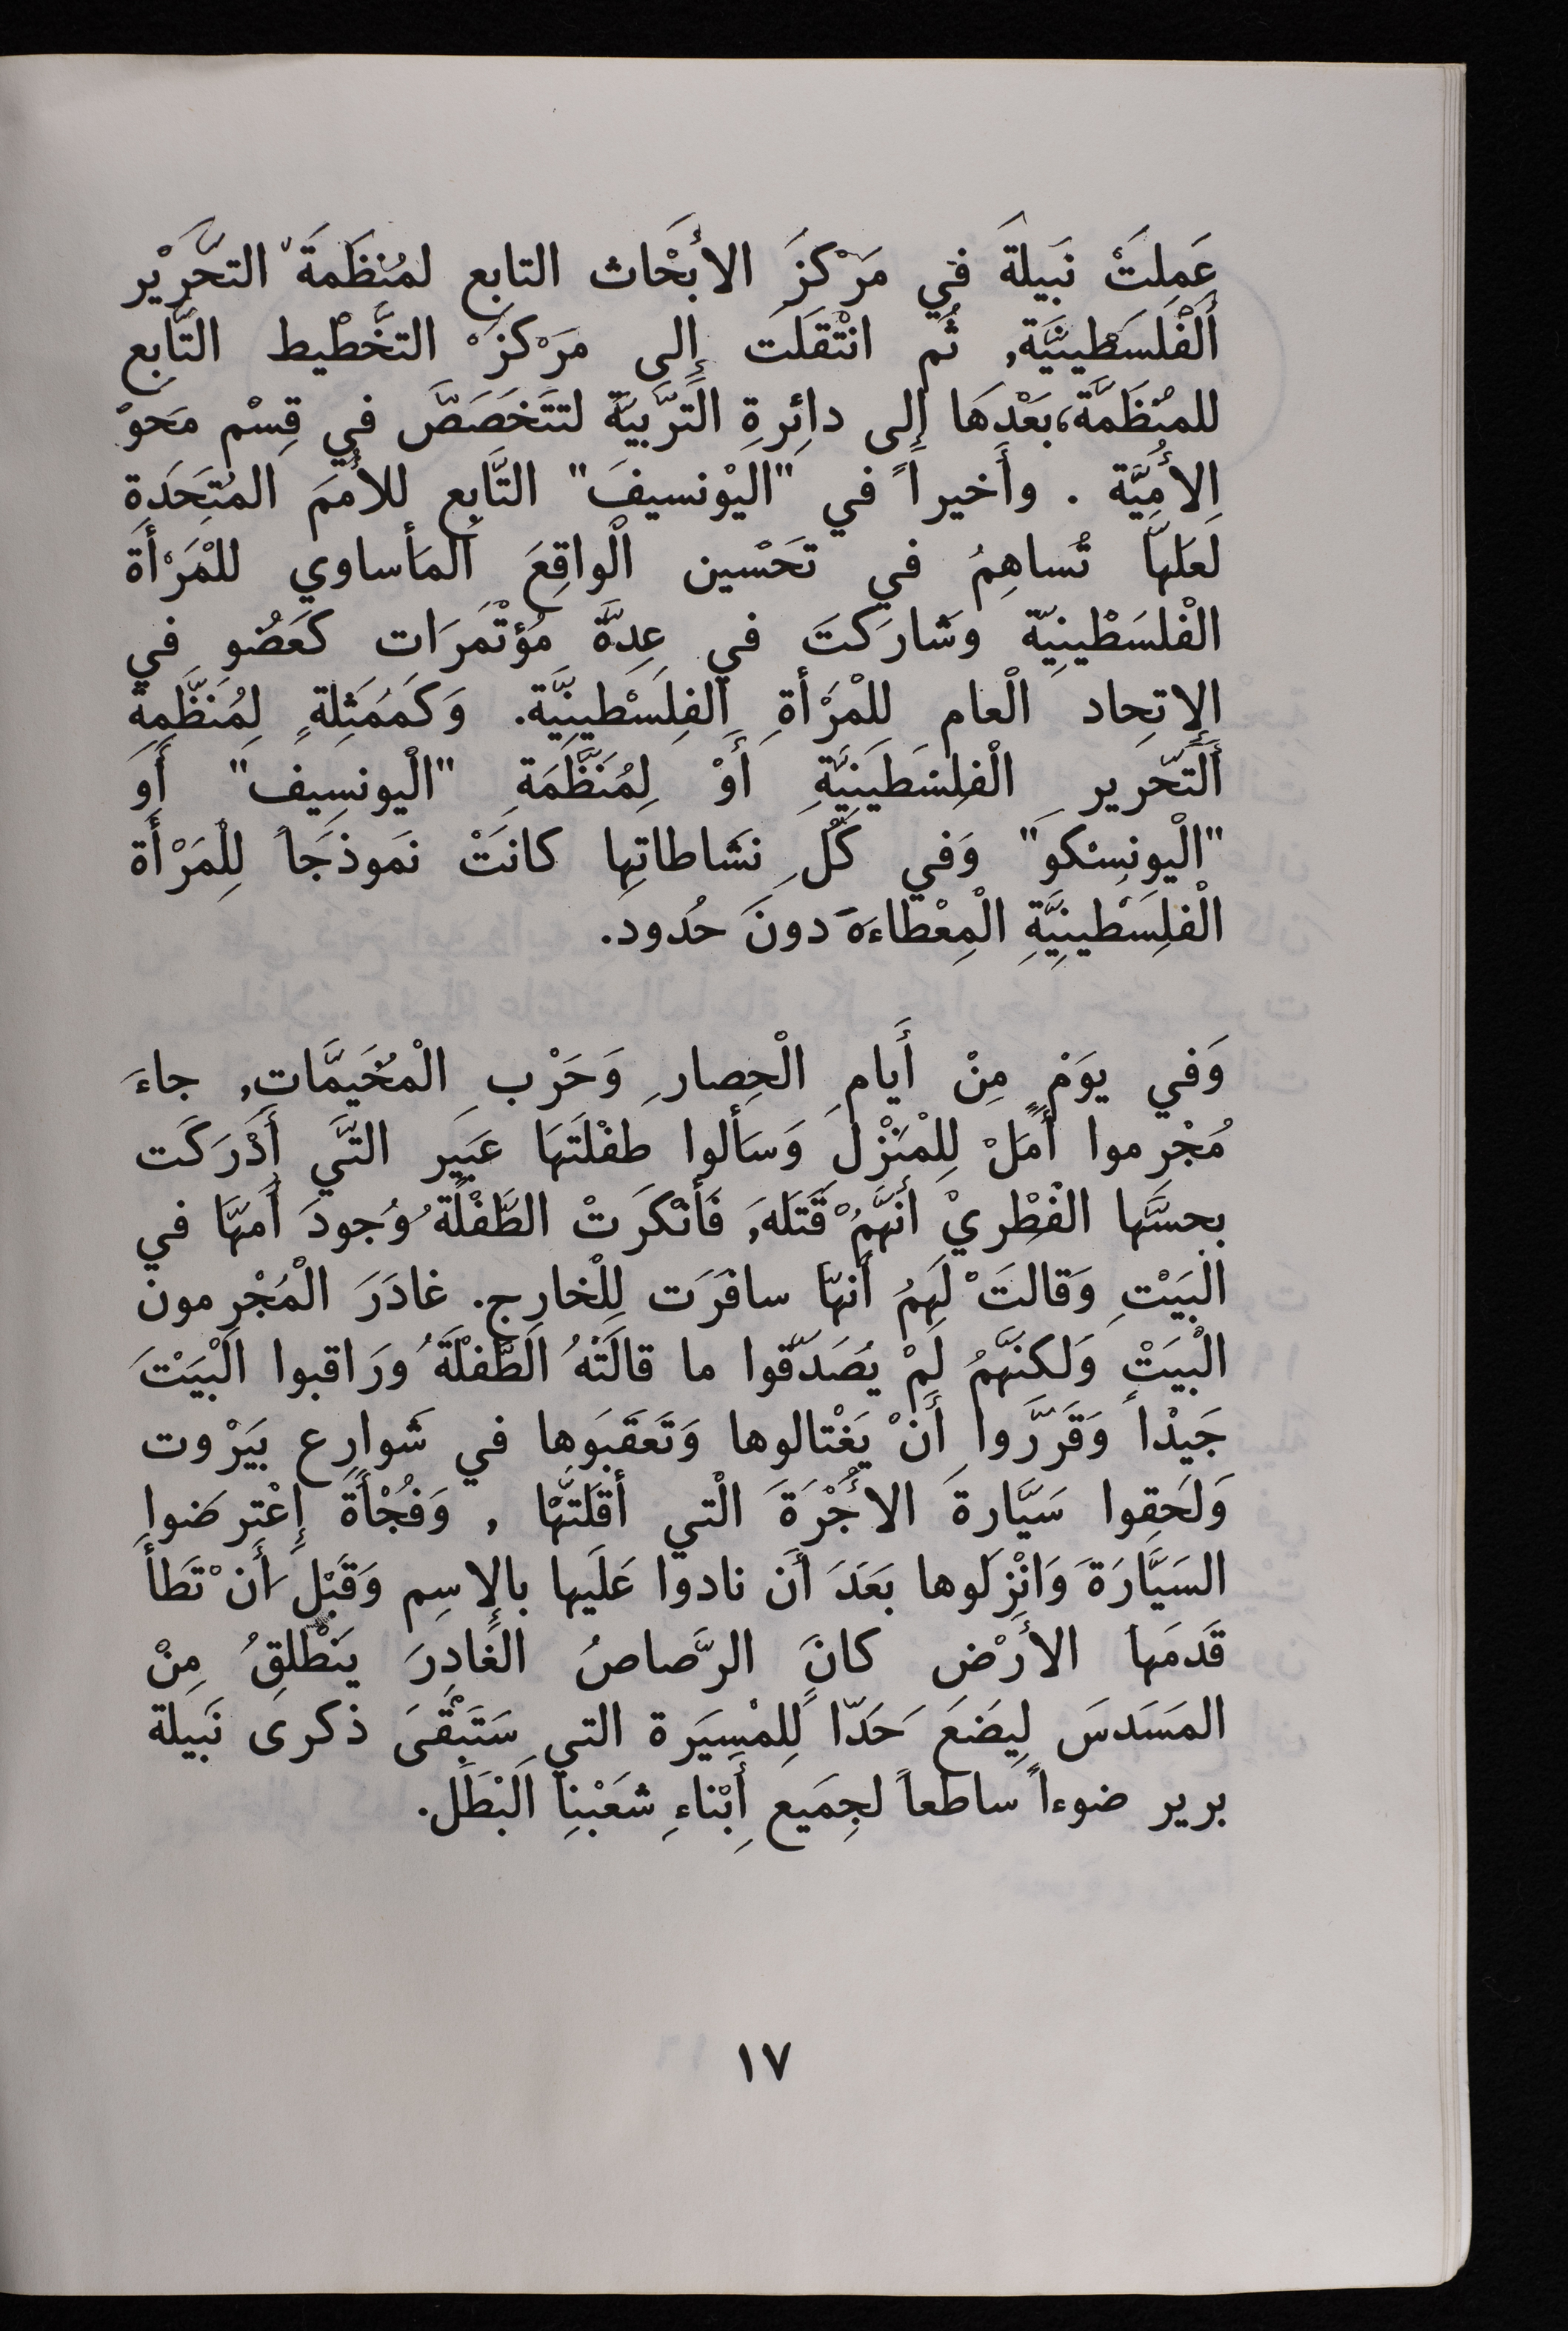 عَمِلَتْ نَبيلةَ في مَرْكزَ الأبْحَاث التابع لمُنظَمةَ التحَّرِيْر
اَلْفَلَسَطْينيَّة, ثُم انْتْقَلَتَ إلى مَرْكزَ التخَّطْيط التَّابع
للمنُظَمَّة،بَعْدَهَا إلى دائِرةِ التَّرَّبيَّة لتتَخَصَصَّ في قِسْم مَحَوْ
الأُمِيَّة . وأَخيراً في "اليْونسيفَ" التَّابِع للأُممَ المتُحَدَةِ
لَعَلهَّا تُساهِمُ في تَحَسْين الْواقِعَ اَلمأساوي للْمَرْأَة
الْفلسَطْينِيّة وشارَكتَ في عِدةَّ مُؤتْمَرَات كَعَضُو في
الإتحِاد الْعام لِلْمَرْأةِ اَلفِلَسْطيِنيَّة. وَكَمَمُثِلةٍ لِمُنَظَّمِةَ
اَلَتحّرَير الْفلِسَطَينِيَّةِ أَوْ لِمُنَظَّمَةِ "الْيونسِيف" أَو
"الْيونسِْكوَ" وَفي كَلِّ نشَاطاتِها كانَتْ نَموذجَاً لِلْمَرْأَة
الْفلِسَطْينِيَّةِ الْمِعْطاءَةَ دونَ حُدود.
وَفي يوَمْ مِنْ أَيام الْحِصارِ وَحَرْب الْمُخَيمَّاتِ, جاءَ
مُجْرِموا أَمَلْ لِلْمَنْزْلَ وَسَألوا طفْلَتَهَا عَبَير التَّي أَدَْرَكَت
بحِسَّها الفْطِريْ أنهَّمُ قَتَلهَ, فَأَنْكَرَتْ الطَّفْلَة وُجودَ أُمهَّا في
البَيَتْ وَقالَتَْ لَهمُ أَنهَّا سافَرَت لِلْخارِج. غادَرَ الْمُجْرِمون
الْبيَتْ وَلكنَّهمُ لَمْ يُصَدّقوا ما قالَتَهْ الَطَّفلْةَ ورَاقبوا الَبْيَتْ
جَيدْاً وَقَرَّروا أَنْ يَغْتالوها وَتَعَقَبَوها في شَوارِع بيَرْوت
وَلَحَقِوا سَيَّارةَ الأُجْرَةَ الْتي أقَلَتهَّْا , وَفُجْأَةَ إعْترضَوا
السَيَّارَةَ وَانْزِلَوها بَعَدَ أَن نادوا عَلَيها بالإسِم وَقَبْل أَنْ تَطأَ
قَدمَها الأرَضْ كانَ الرَّصاصُ الغَادِرَ يَنَطْلِقُ مِنْ
المَسَدسَ لِيضَعَ حَدّاً لِلمْسِيَرة التي سَتَبْقَىَ ذكرى نَبيلة
برير ضوءاً ساطعاً لجِمَيع أبْناءِ شعَبْنِا اَلبْطَلَ.
١٧